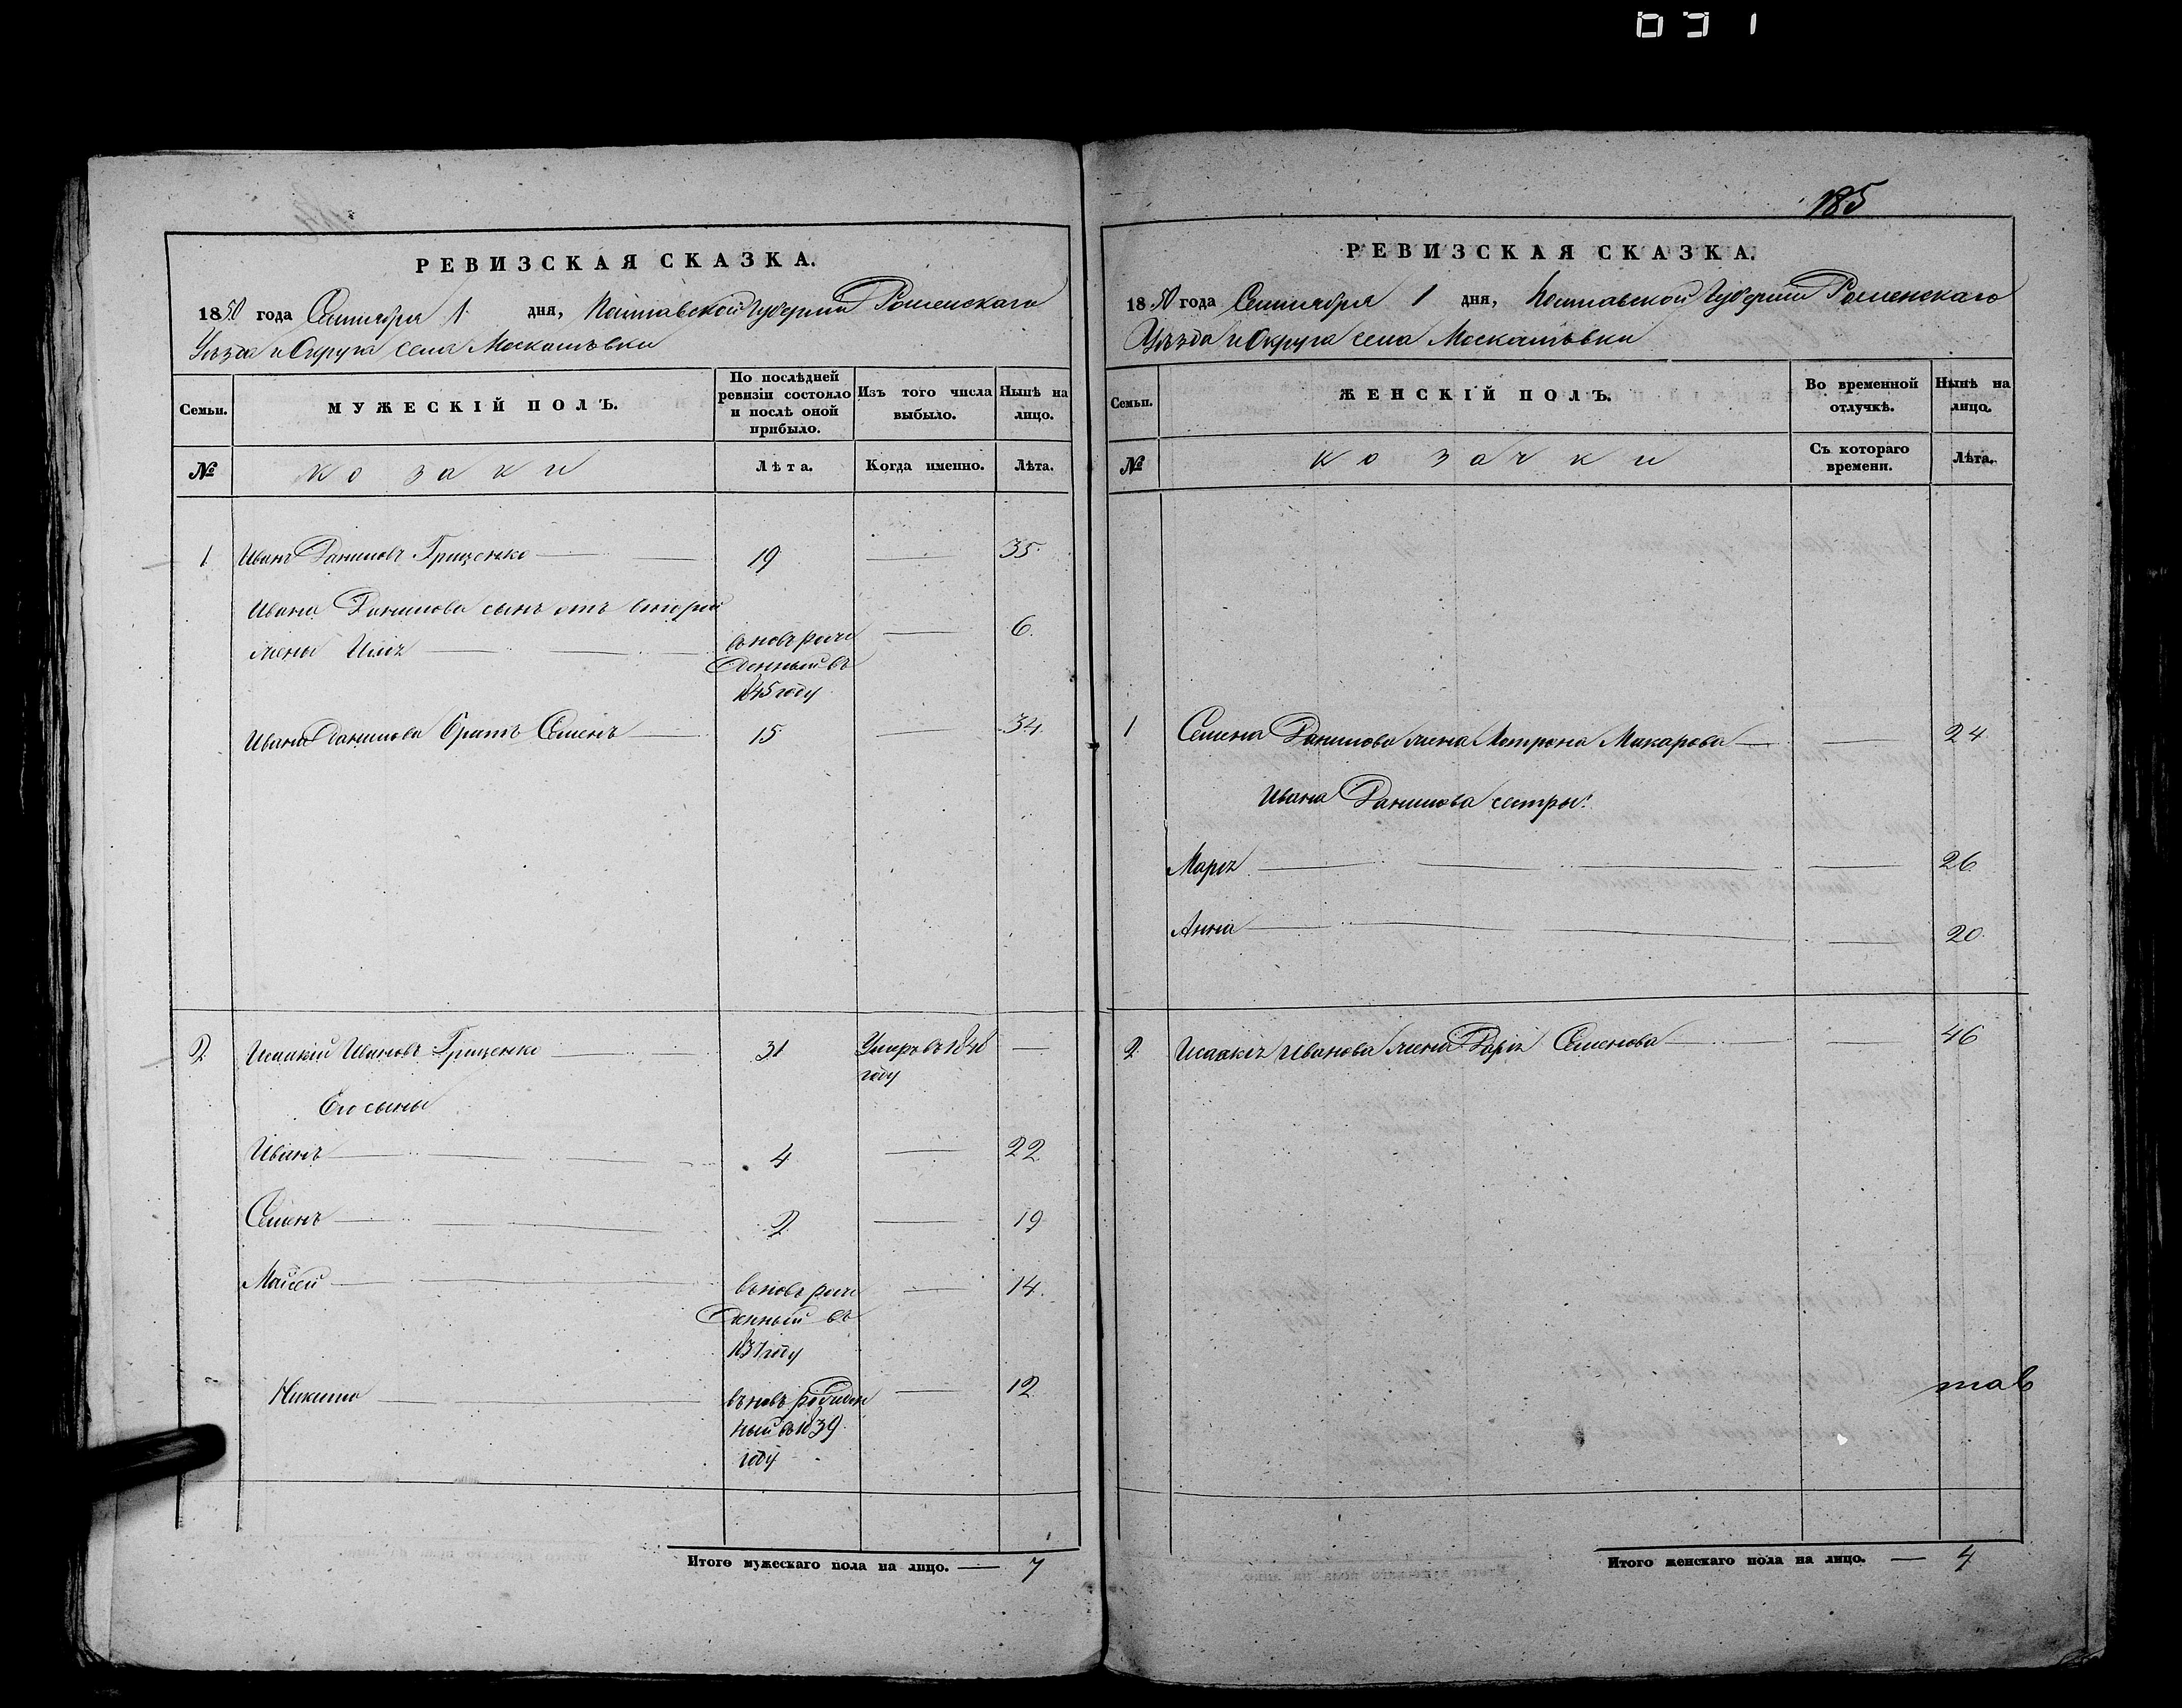 185
РЕВИЗСКАЯ СКАЗКА.
1850 года Сентября 1 дня, Полтавской Губернии Роменскаго
Уѣзда и Округа села Москалѣвки
Семьи.
МУЖЕСКІЙ ПОЛЪ.
По послѣдней ревизіи состояло и послѣ оной прибыло.
Изъ того числа выбыло.
Нынѣ на лицо.
№
козаки
Лѣта.
Когда именно.
Лѣта.
1 Иванъ Даниловъ Гриценко 19 — 35
Ивана Данилова сынъ отъ второй
жены Илія вновь рож- — 6.
денный въ
1845 году
Ивана Данилова братъ Семенъ 15 — 34
2 Исаакій Ивановъ Гриценко 31 Умеръ въ
году
Его сыны
Иванъ 4 — 22
Семенъ 2 — 19
Маисей вновь рож- — 14.
денный въ
1837 году
Никита вновь рожден — 12
ный въ 1839
году
Итого мужескаго пола на лицо. — 7
РЕВИЗСКАЯ СКАЗКА.
1850 года Сентября 1 дня, Полтавской Губернии Роменскаго
Уѣзда и Округа села Москалѣвки
Семьи.
ЖЕНСКІЙ ПОЛЪ.
Во временной отлучкѣ.
Нынѣ на лицо.
№
козачки
Съ котораго времени.
Лѣта.
1 Семена Данилова жена Мотрона Макарова — 24
Ивана Данилова сестры:
Марія — 26
Анна — 20
2 Исаакія Иванова жена Дарія Семенова 46
Итого женскаго пола на лицо. — 4